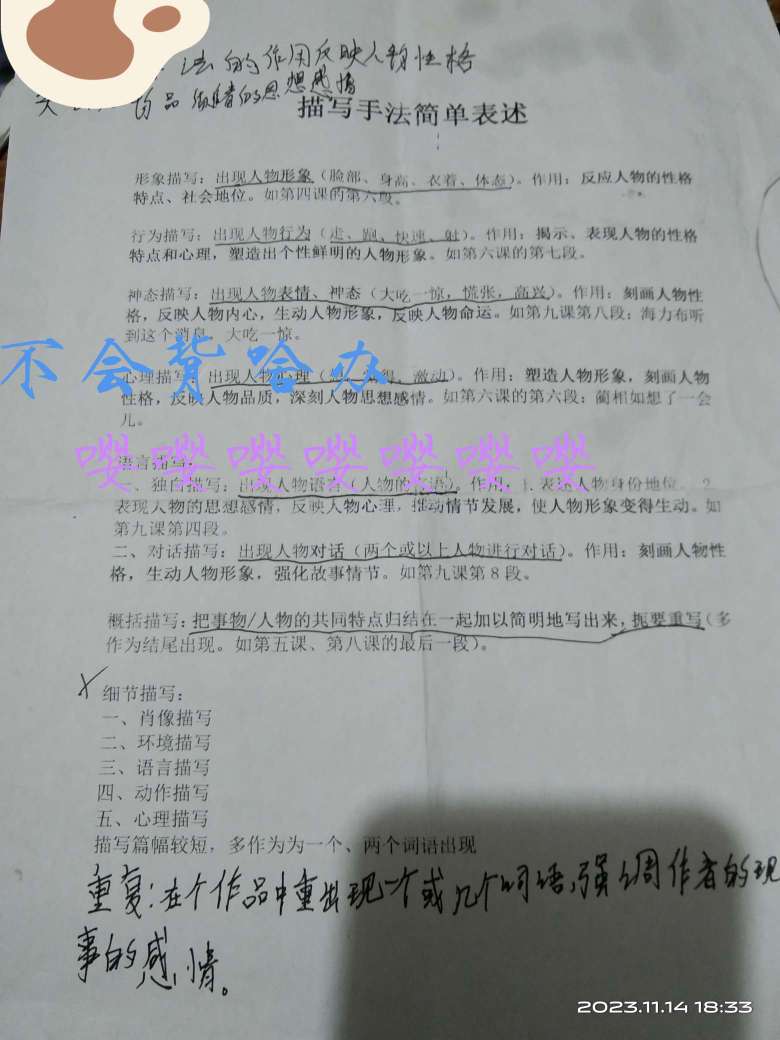 法的作用反映人物性格
品 作者的思想感情
描写手法简单表述
形象描写：出现人物形象（脸部、身高、衣着、体态）。作用：反应人物的性格
特点、社会地位。如第四课的第六段。
行为描写：出现人物行为（走、跑、快速、射）。作用：揭示、表现人物的性格
特点和心理，塑造出个性鲜明的人物形象。如第六课的第七段。
神态描写：出现人物表情、神态（大吃一惊，慌张，高兴）。作用：刻画人物性
格，反映人物内心，生动人物形象，反映人物命运。如第九课第八段：海力布听
到这个消息，大吃一惊。
不会背啥办
心理描写：出现人物心理（觉得、激动）。作用：塑造人物形象，刻画人物
性格，反映人物品质，深刻人物思想感情。如第六课的第六段：蔺相如想了一会
儿。
嘤嘤嘤嘤嘤嘤嘤嘤
语言描写：
一、独白描写：出现人物语言（人物的话语）。作用：1.表达人物身份地位。2.
表现人物的思想感情，反映人物心理，推动情节发展，使人物形象变得生动。如
第九课第四段。
二、对话描写：出现人物对话（两个或以上人物进行对话）。作用：刻画人物性
格，生动人物形象，强化故事情节。如第九课第8段。
概括描写：把事物/人物的共同特点归结在一起加以简明地写出来，扼要重写（多
作为结尾出现。如第五课、第八课的最后一段）。
细节描写：
一、肖像描写
二、环境描写
三、语言描写
四、动作描写
五、心理描写
描写篇幅较短，多作为为一个、两个词语出现
重复：在个作品中重出现一个或几个词语，强调作者的现
事的感情。
2023.11.14 18:33